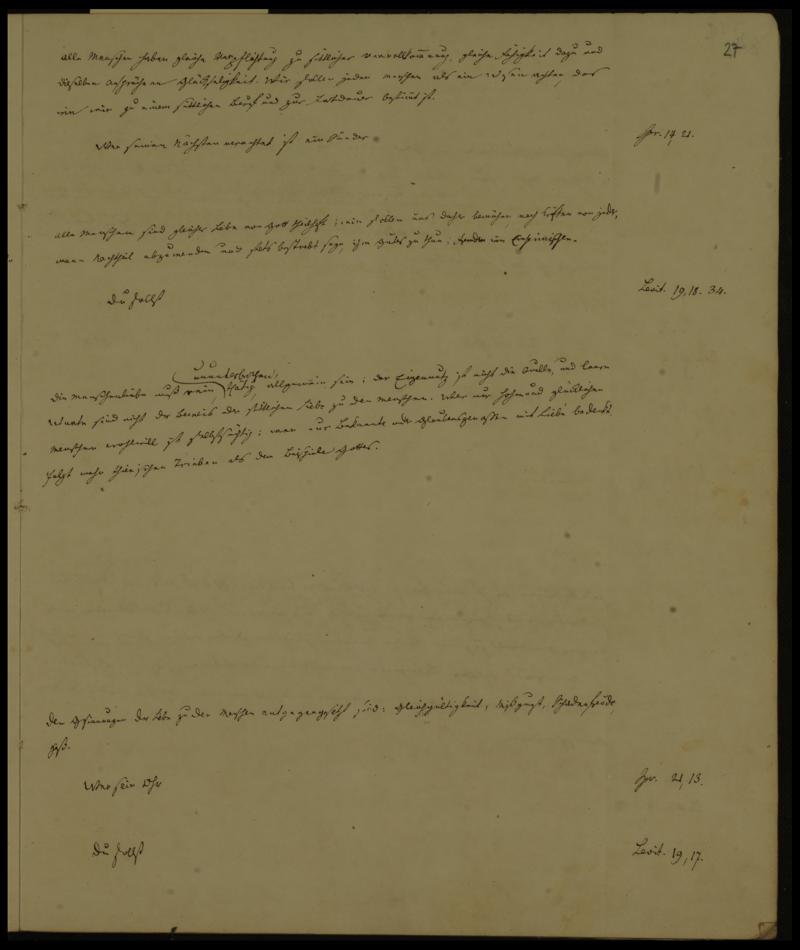 27
alle Menschen haben gleiche Verpflichtung zu sittlicher Vervollkommnung, gleiche Fähigkeit dazu und
dieselben Ansprüche an Glückseligkeit. Wir sollen jeden Menschen als ein Wesen achten, das
wie wir zu einem sittlichen Beruf und zur Fortdauer bestimmt ist.
Wer seinen Nächsten verachtet ist ein Sünder Spr. 14, 21.
alle Menschen sind gleicher Liebe von Gott; wir sollen uns daher bemühen nach Kräften von jeder-
mann Nachtheil abzuwenden und stets bestrebt seyn, ihm Gutes zu thun;
Du sollst Levit. 19, 18. 34.
ununterbrochen,
Die Menschenliebe muß rein, thätig, allgemein sein; der Eigennutz ist nicht die Quelle, und leere
Worte sind nicht der Beweis der sittlichen Liebe zu den Menschen. Wer nur hohen und glücklichen
Menschen wohlwill ist selbstsüchtig; wer nur Bekannte oder Glaubensgenossen mit Liebe bedenkt
folgt mehr thierischen Trieben als dem Beispiele Gottes.
Den Gesinnungen der Liebe zu den Menschen entgegengesetzt sind: Gleichgültigkeit, Mißgunst, Schadenfreude,
Haß.
Wer sein Ohr Spr. 21, 13.
Du sollst Levit. 19, 17.